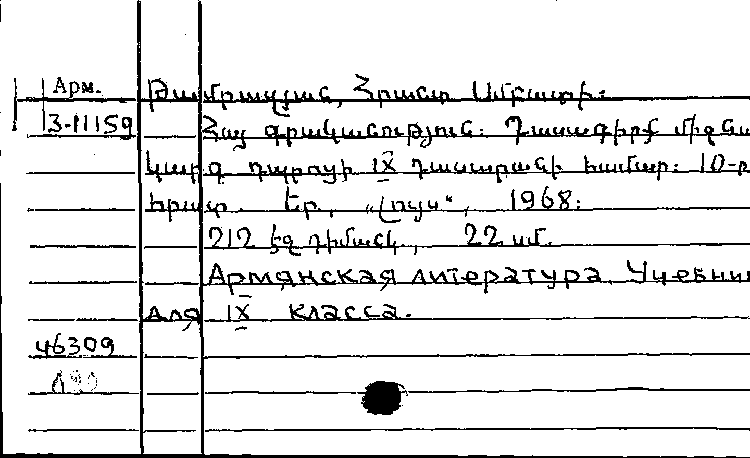 Арм. Թամրազյան, Հրանտ Սմբատի։
3-11159 Հայ գրականություն։ Դասագիրք միջնա
կարգ դպրոցի IX դասարանի համար։ 10-րդ
հրատ. Եր., „Լույս“, 1968։
212 էջ դիմանկ., 22 սմ.
Армянская литература. Учебник
для IX класса.
46309